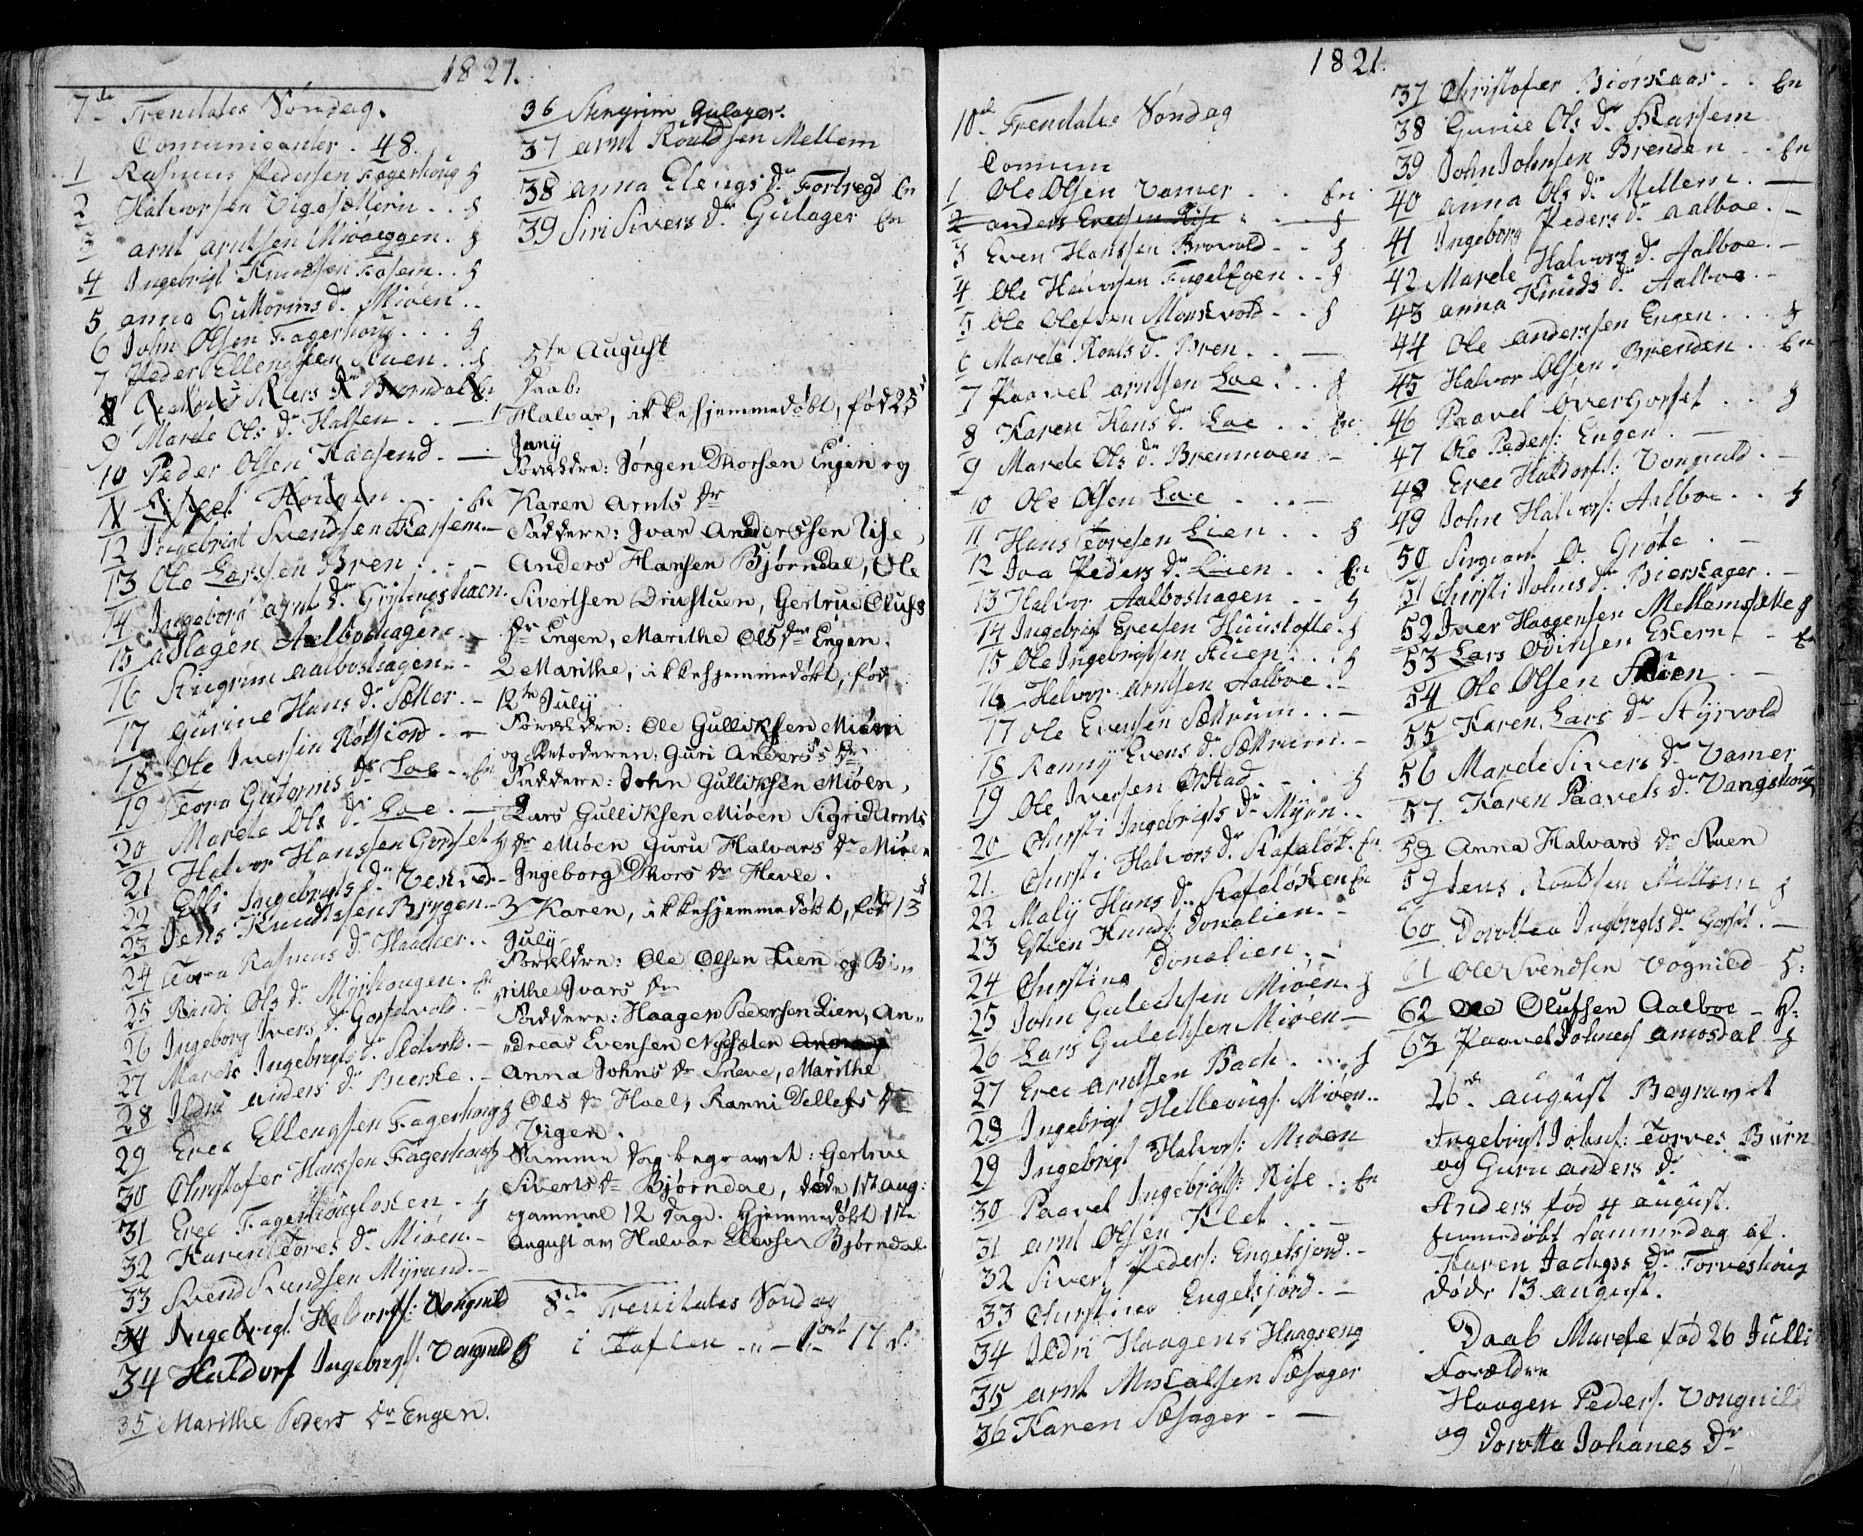 1821.
7de Trenitates Søndag.
Comunicanter. 48.
1 Rasmus Pedersen Fagerhoug H
2 Halvorsen Vigasætterin . . H
3 arnt arntsen Mioaeggen. H
4 Ingebrigt Knudsen Fosem . . H
5 anna Guttorms Dr Mioen . .
6 John Olsen Fagerhoug . . . H
7 Peder Ellengsen Ruen . . H
8 Siers Dr Biorndal En
9 Marete Ols Dr Halsen . . . —
10 Peder Olsen Kaasend. —
11 Hougen . . . En
12 Ingebrigt Svendsen Skasem. —
13 Ole Larssen Bren . . . —
14 Ingeborg arnt Dr Grytingshaen.
15 Hagen Aalboshagen . —
16 Stingrim aalboshagen. —
17 Gurine Hans Dr Sætter. —
18 Ole Iversen Røtsiord — —
19 Tora Gutormis Dr Loe — En
20 Marete Ols Dr Loe . —
21 Halvor Hanssen Gorset H
22 Elli Ingebrigts Dr —
23 Jens Knudtssen Brygen. —
24 Tora Rasmus Dr Haaker. .
25 Randi Ols Dr Myrhougen. En
26 Ingeborg Ivers Dr Gorsetvold. —
27 Marete Ingebrigts Dr —
28 Ildri anders Dr —
29 Erec Ellengsen Fagerhoug H
30 Christofer Hanssen Fagerhoug
31 Erec Fagerhougløsken. H
32 Karen Tores Dr Mioen. —
33 Svend Svendsen Myrand. —
34 Ingebrigt Haldorss: Vongnild
34 Haldorf Ingebrigts. Vongnild H
35 Marithe Peders Dr Engen.
36 Stengrim Gulager.
37 arnt Roaldsen Mellem
38 anna Elengs Dr Fortregd En
39 Siri Sivers Dr Gulager En
5te August
Daab:
1 Halvar, ikke hjemmedøbt, fød 25
Juny
Forældre: Jørgen Thorsen Engen og
Karen Arnts Dr
Faddere: Ivar Anderssen Rise,
Anders Hansen Bjørndal, Ole
Sivertsen Drivstuen, Gertrue Olufs
Dr Engen, Marithe Ols Dr Engen.
2 Marithe, ikke hjemmedøbt, fød
12te July
Forældre: Ole Gulliksen Miøen
og Guri Anders Dr
Faddere: John Gulliksen Miøen,
Lars Gulliksen Miøen Sigrid Arnts
Dr Miøen Guru Halvars Dr Miøen
Ingeborg Thors Dr Hevle.
3 Karen, ikke hjemmedøbt, fød 13
July
Forældre: Ole Olsen Lien og Bi„
rithe Ivars Dr
Faddere: Haagen Pedersen Lien, An„
„dreas Evensen Nysæten
Anna Johns Dr Træve, Marithe
Ols Dr Hoel, Ranni Dellefs Dr
Vigen.
Samme dag begravet: Gertrue
Siverts Dr Bjørndal, døde 1st aug:
gammel 12 dage. Hjemmedøbt 1ste
August av Halvar Elevsen Bjørndal.
8de Trenitates Søndag
i Taflen 17 d:
1821.
10de Trenitates Søndag
Comum
1 Ole Olsen Vamer . . . En
2 anders Evensen Rise . . — H
3 Even Hanssen Brovold . . H
4 Ole Halvorsen Fugelegen . . H
5 Ole Olefsen Monsvold . . H
6 Marete Roals Dr Bren . . . —
7 Paavel arntsen Loe . . . H
8 Karen Hans Dr Loe . . En
9 Marete Ols Dr Brenmoen —
10 Ole Olsen Loe . . . —
11 Hans Toresen Lien . . . H
12 Iva Peders Dr Lien . . En
13 Halvor Aalboshagen . . . H
14 Ingebrigt Erecsen Huustofte. H
15 Ole Ingebrigtsen Ruen . . . H
16 Halvor Arntsen Aalboe. —
17 Ole Evensen Sætrum . . —
18 Ranny Evens Dr Sætrum. —
19 Ole Iversen Ørstad . . . H
20 Chirsti Ingebrigts Dr Myrn . .
21. Chirsti Halvors Dr Rafaløk. En
22 Maly Hans Dr Rafaløsken En
23 Esten Knuds: Donalien. —
24 Chirstina Donalien. —
25 John Gulechsen Mioen. H
26 Lars Gulechsen Mioen —
27 Erec arntsen Bach . . . H
28 Ingebrigt Hellevigs: Mioen . .
29 Ingebrigt Halvors: Mioen
30 Paavel Ingebrigts: Rise . . En
31 arnt Olsen Klet . . . —
32 Sivert Peders: Engelsjord. —
33 Chirstina Engelsjord. —
34 Ildri Haagens Haagseng
35 arnt Miskalsen Sæsager
36 Karen Sæsager . —
37 Christofer Biørskaas . . En
38 Gurie Ols Dr Skarsem
39 John Johnsen Brenden . . En
40 anna Ols Dr Mellem. —
41 Ingeborg Peders Dr aalboe. —
42 Marete Halvors Dr Aalboe. —
43 anna Knuds Dr Aalboe. —
44 Ole anderssen Engen . . . H
45 Halvor Olsen Brenden . . En
46 Paavel Overgorset . . . H
47 Ole Peders: Engen . —
48 Erec Haldorss: Vongnild. —
49 John Halvors: Aalboe . . H
50 Sirgiant O. Grøte . —
51 Chirsti Johns Dr Bierskager. —
52 Iver Haagensen Mellemsætte H
53 Lars Odinsen Ekern . — En
54 Ole Olsen Støen . —
55 Karen Lars Dr Styrvold
56 Marete Sivers Dr Vamer
57. Karen Paavels Dr Vangshoug
58 Anna Halvars Dr Ruen
59 Jens Roaldsen Mellem H
60 Dorottea Ingebrigts Dr Gorset. —
61 Ole Svendsen Vognild H:
62 Ole Olufsen Aalboe — H:
63 Paavel Johnes amosdal H
26de august Begravet
Ingebrigt Johns: Torves Barn
og Guru anders Dr
Anders fød 4 august.
hiemedøbt sammedag af.
Karen Jachops Dr Torveshoug
døde 13 august.
Daab Marete fød 26 Julli
Forældre
Haagen Peders. Vongnild
og Dorotta Johanes Dr